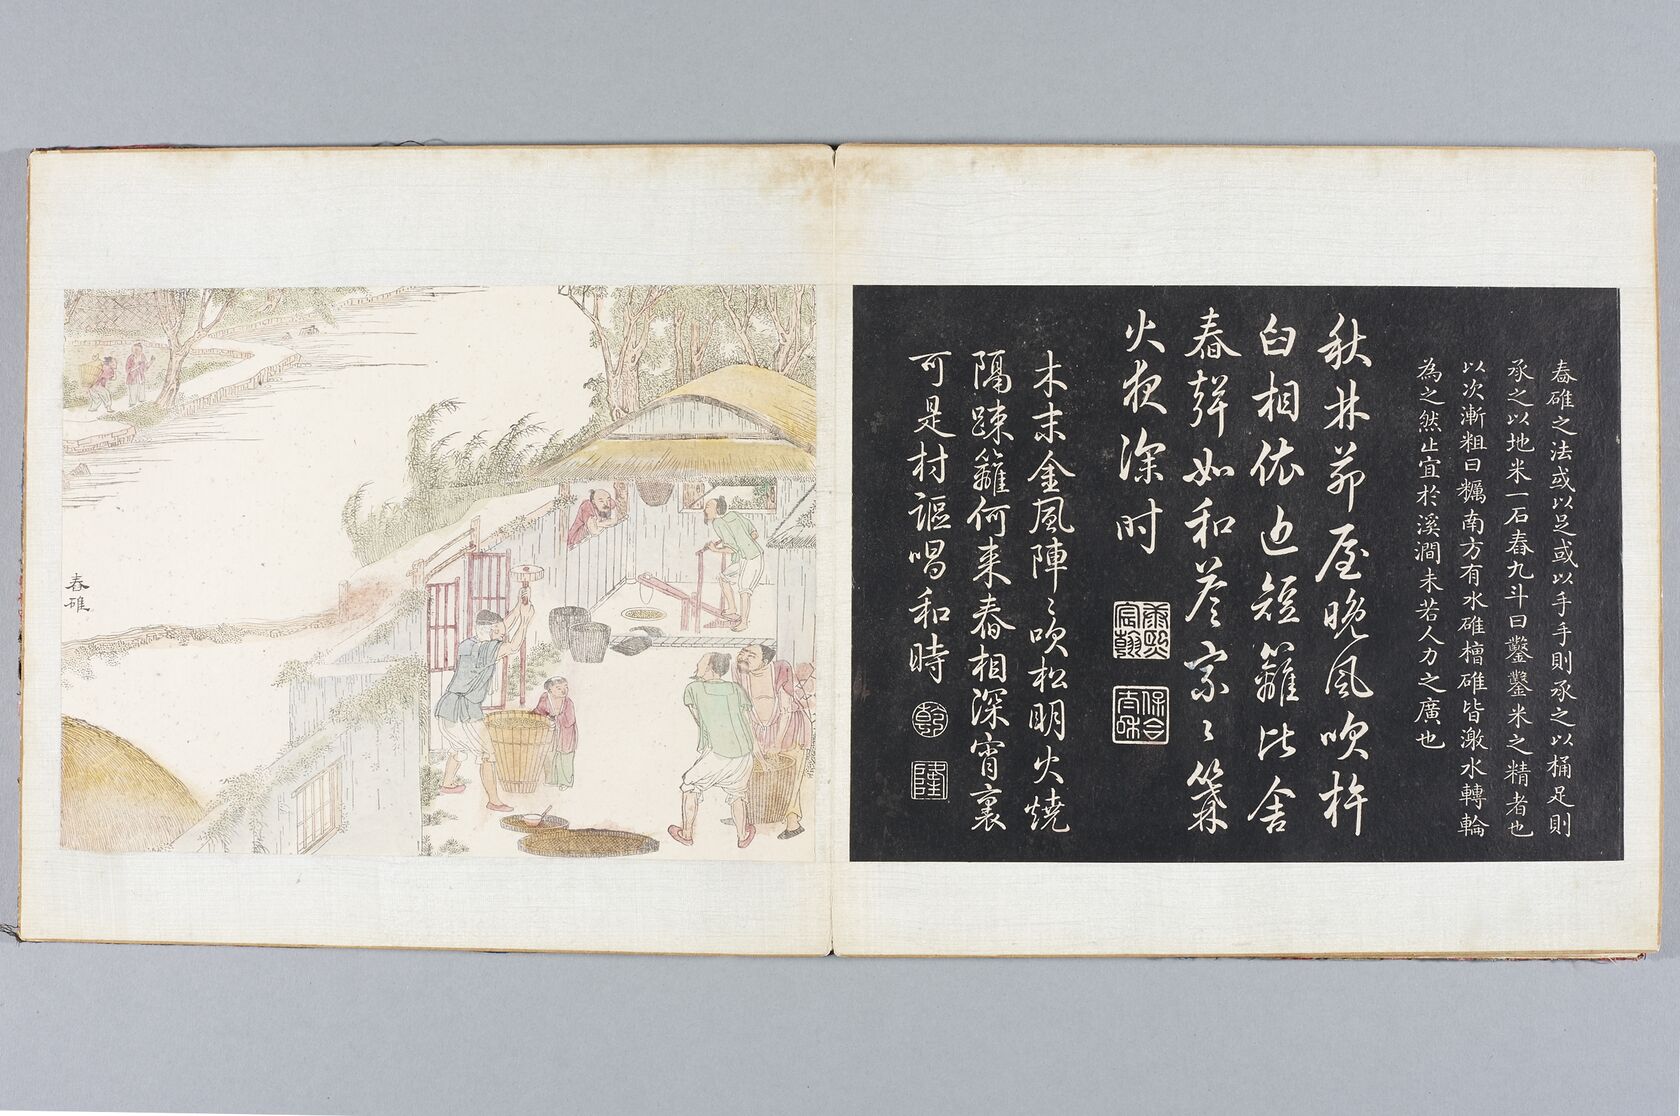 舂碓之法或以足或以手手則承之以桶足則
承之以地米一石舂九斗曰鑿鑿米之精者也
以次漸粗曰糲南方有水碓槽碓皆激水轉輪
為之然止宜於溪澗未若人力之廣也
秋林茆屋晚風吹杵
臼相依近短籬比舍
舂聲如和答家〻篝
火夜深時
康熙宸翰
保合太和
木末金風陣〻吹松明火燒
隔疎籬何来舂相深宵裏
可是村謳唱和時
乾
隆
舂碓